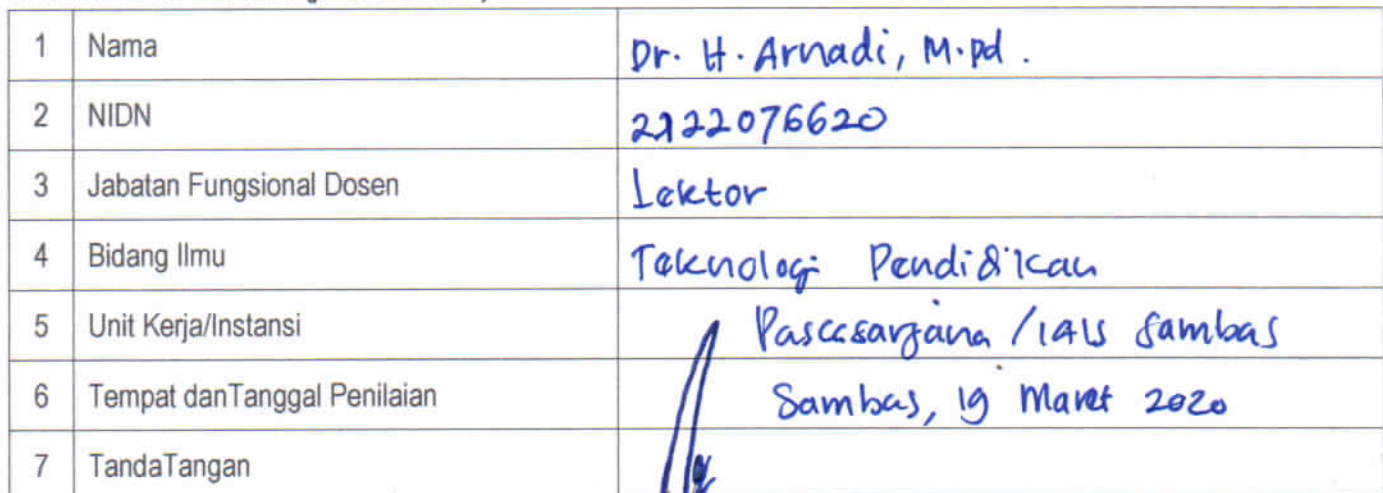 1 Nama Dr. H. Arnadi, M.pd.
2 NIDN 2122076620
3 Jabatan Fungsional Dosen Lektor
4 Bidang Ilmu Teknologi Pendidikan
5 Unit Kerja/Instansi Pascasarjana / IAIS Sambas
6 Tempat danTanggal Penilaian Sambas, 19 Maret 2020
7 TandaTangan